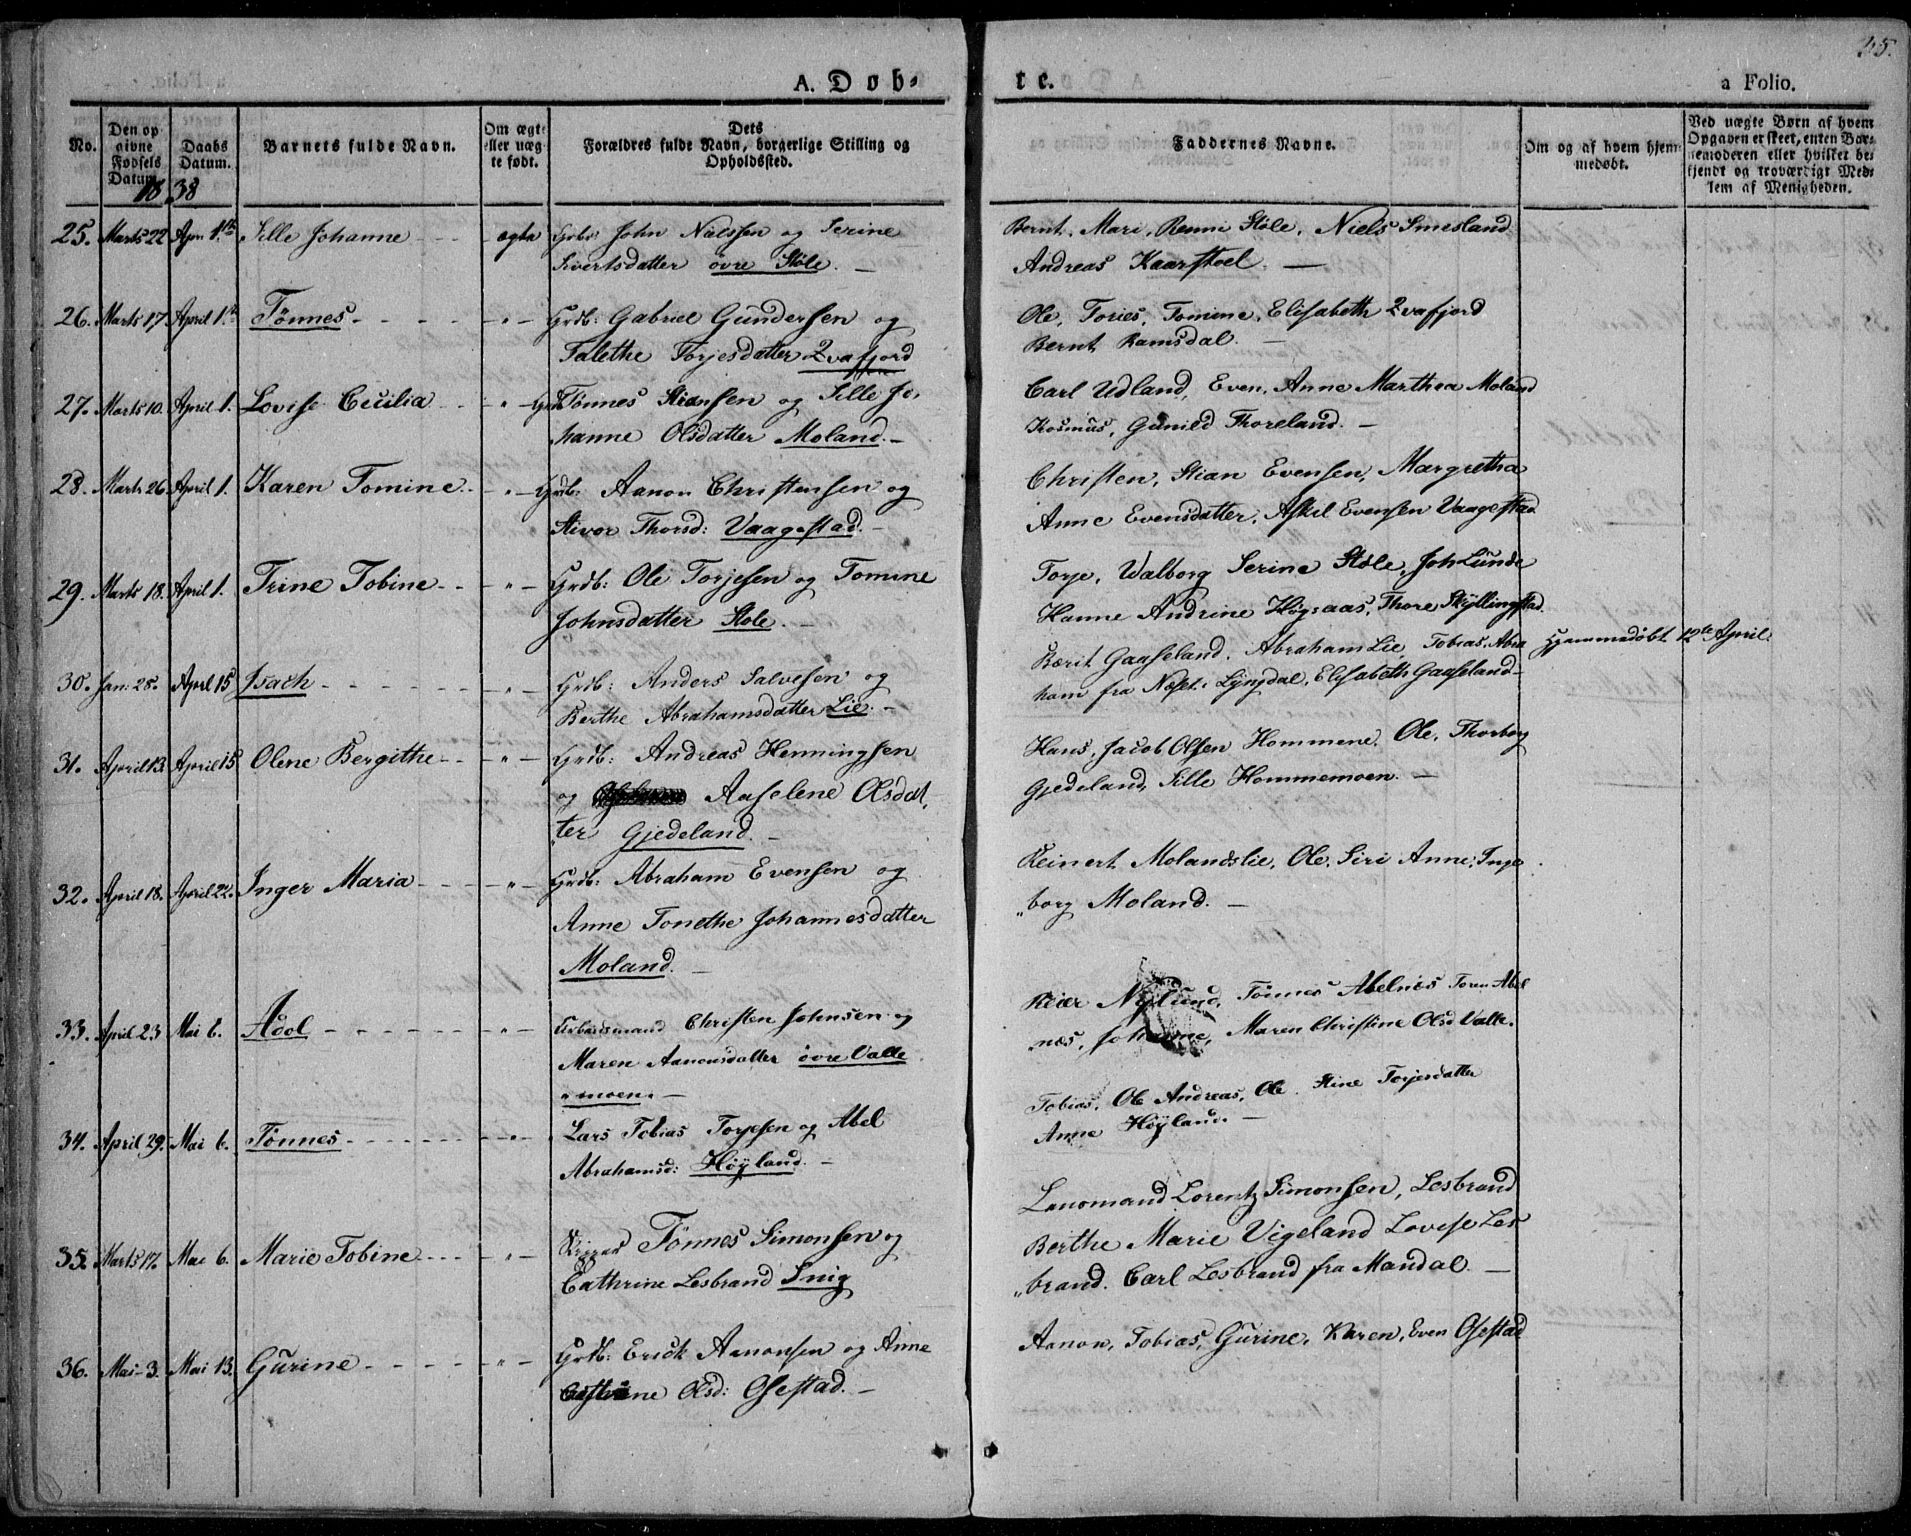 25.
A. Døb-
te.
a Folio.
No.
Den opgivne Fødsels Datum.
Daabs Datum.
Barnets fulde Navn.
Om ægte eller uægte født.
Dets Forældres fulde Navn, borgerlige Stilling og Opholdssted.
Faddernes Navne.
Om og af hvem hjemmedøbt.
Ved uægte Børn af hvem Opgaven er skeet, enten Barnemoderen eller hvilket bekjendt og troværdigt Medlem af Menigheden.
1838
25. Marts 22 April 1ste Sille Johanne - - - ægte Grbr John Nielsen og Serine
Sivertsdatter øvre Støle. -
Bernt, Mari, Remi Støle, Niels Smesland
Andreas Kaarstoel. -
26. Marts 17 April 1ste Tønnes - - - - " - Grdb: Gabriel Gundersen og
Talethe Torjesdatter Qvafjord
Ole, Tories, Tomine, Elisabeth Qvafjord
Bernt Ramsdal. -
27. Marts 10. April 1. Lovise Cecilia - - " - Grdb Tønnes Stiansen og Sille Jo,
hanne Olsdatter Moland. -
Carl Udland, Even, Anne Marthea Moland
Rosmus, Gunild Thoreland. -
28. Marts 26 April 1. Karen Tomine - - " - Grdb: Aanon Christensen og
Sivor Thorsd: Vaagestad -
Christen, Stian Evensen, Margretha
Anne Evensdatter, Askil Evensen Vaagestad.
29. Marts 18. April 1. Trine Tobine - - - " - Grdb: Ole Torjesen og Tomine
Johnsdatter Støle. -
Torje, Walborg Serine Støle, Joh Lunde
Hanne Andrine Høgsaas, Thore Skyllingstad.
30. Jan: 28. April 15 Isach - - - - - " - Grdb: Anders Salvesen og
Berthe Abrahamsdatter Lie. -
Berit Gaaseland. Abraham Lie, Tobias, Abra
ham fra Næset i Lyngdal, Elisabeth Gaaseland -
Hjemmedøbt 12te April.
31. April 13. April 15 Olene Bergithe - - " - Grdb: Andreas Henningsen
og Aaselene Olsdat,
"ter Gjedeland. -
Hans, Jacob Olsen Hommene, Ole, Thorborg
Gjedeland, Sille Hommemoen. -
32. April 18. April 22. Inger Maria - - - " - Grdb: Abraham Evensen og
Anne Tonethe Johannesdatter
Moland. -
Reinert Molandslie, Ole, Siri Anne, Inge
"borg Moland. -
33. April 23 Mai 6. Adol - - - - - " - Arbeidsmand Christen Johnsen og
Maren Aanonsdatter øvre Valle
"moen. -
Reier Nylund, Tønnes Abelnes Toren Abel
næs, Johanne, Maren Christine Olsd Valle.
34. April 29. Mai 6. Tønnes - - - - - " - Lars Tobias Torjesen og Abel
Abrahamsd: Høyland. -
Tobias, Ole Andreas, Ole. Stine Torjesdatter
Anne Høyland. -
35. Marts 17. Mai 6. Marie Tobine - - - " - Tønnes Simonsen og
Cathrine Lesbrand Snig
Lensmand Lorentz Simonsen, Lesbrand
Berthe Marie Vigeland Lovise Les
"brand. Carl Lesbrand fra Mandal. -
36. Mai 3. Mai 13. Gurine - - - - " - Grdb: Erick Aanonsen og Anne
Olsd: Osestad. -
Aanon, Tobias, Gurine, Karen, Even Osestad